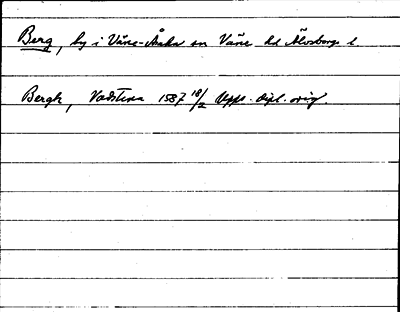 Berg, by i Väne-Åsaka sn Väne hd Älvsborgs l
Bergh, Vadstena 1587 18/2 Upps. dipl. orig.